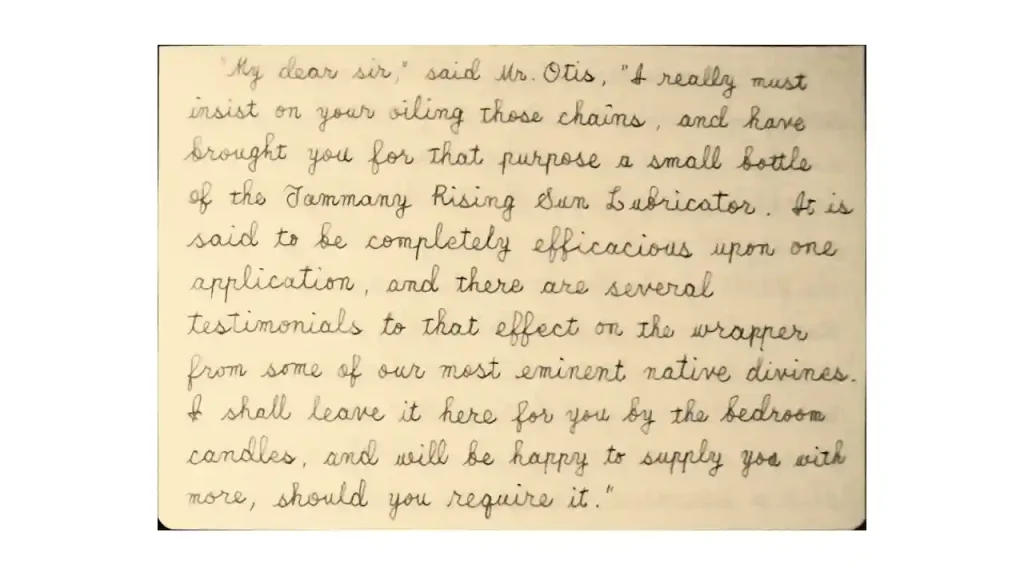 "My dear sir," said Mr. Otis, "I really must
insist on your oiling those chains, and have
brought you for that purpose a small bottle
of the Tammany Rising Sun Lubricator. It is
said to be completely efficacious upon one
application, and there are several
testimonials to that effect on the wrapper
from some of our most eminent native divines.
I shall leave it here for you by the bedroom
candles, and will be happy to supply you with
more, should you require it."